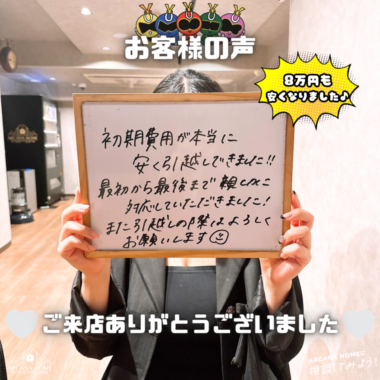 お客様の声
8万円も
安くなりました♪
初期費用が本当に
安く引越しできました!!
最初から最後まで親しみに
対応していただきました!
また引越しの際はよろしく
お願いします
ご来店ありがとうございました
相談してみよう!